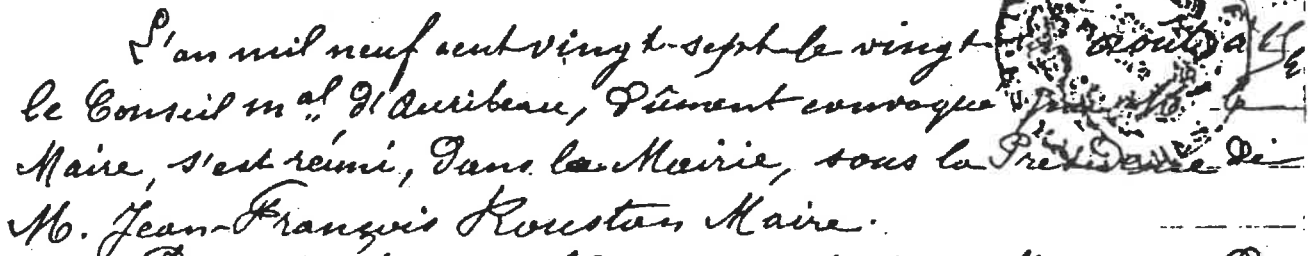 L'an mil neuf cent vingt-sept le vingt- août à
le Conseil m.al d'Auribeau, Dûment convoqué
Maire, s'est réuni, Dans la Mairie, sous la Présidence de
M. Jean-François Rouston Maire.